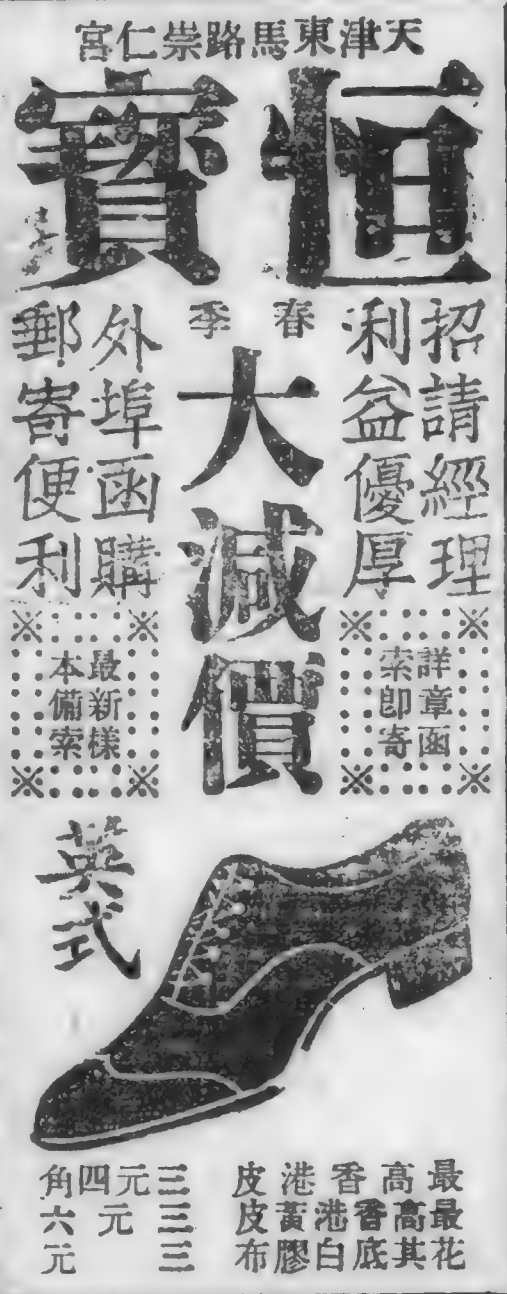 天津東馬路崇仁宮
恒寶
招請經理
利益優厚
詳章函
索卽寄
春季
大減價
外埠函購
郵寄便利
最新樣
本備索
英式
最高香港皮 三元四角
最高香港黃皮 三元六
花其底白膠布 三元